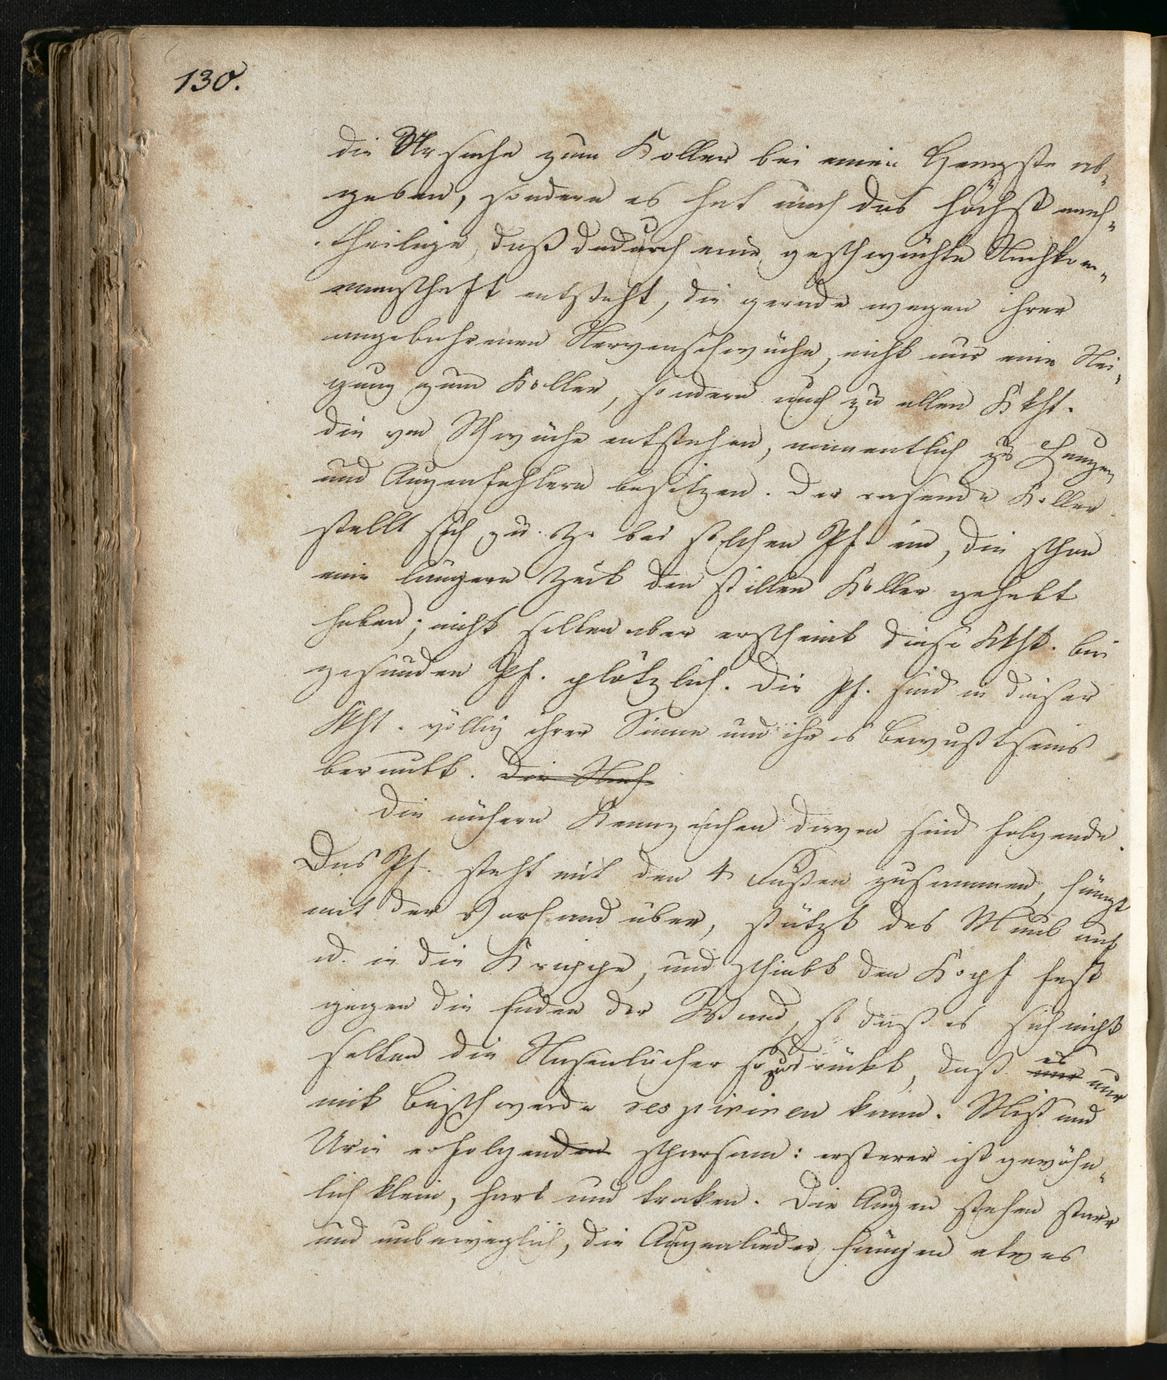 130.
die Ursache zum Koller bei einem Hengste ab¬
geben, sondern es hat auch das höchst nach¬
theilige, daß dadurch eine geschwächte Nachkom¬
menschaft entsteht, die gerade wegen ihrer
angebohrenen Nervenschwäche, nicht nur eine Nei¬
gung zum Koller, sondern auch zu allen Kkht.
die von Schwäche entstehen, namentlich zu
und Augenfehlern besitzen. Der rasende Koller
stellt sich zu. Z. bei solchen Pf. ein, die schon
eine längere Zeit den stillen Koller gehabt
haben; nicht selten aber erscheint diese Kkht. bei
gesunden Pf. plötzlich. Die Pf. sind in dieser
Kkht. völlig ihrer Sinne und ihres Bewußtseins
beraubt. Die Nach
Die nähern Kennzeichen davon sind folgende.
Das Pf. steht mit den 4 Füßen zusammen, hängt
mit der Vorhand über, stützt das Maul auf
od. in die Krippe, und schiebt den Kopf fest
gegen die Enden der Wand, so daß es sich nicht
selten die Nasenlöcher so zudrückt, daß es nur
mit Beschwerde respiriren kann. Mist und
Urin erfolgenden sparsam: ersterer ist gewöhn¬
lich klein, hart und troken. Die Augen stehen starr
und unbeweglich, die Augenlieder hängen etwas